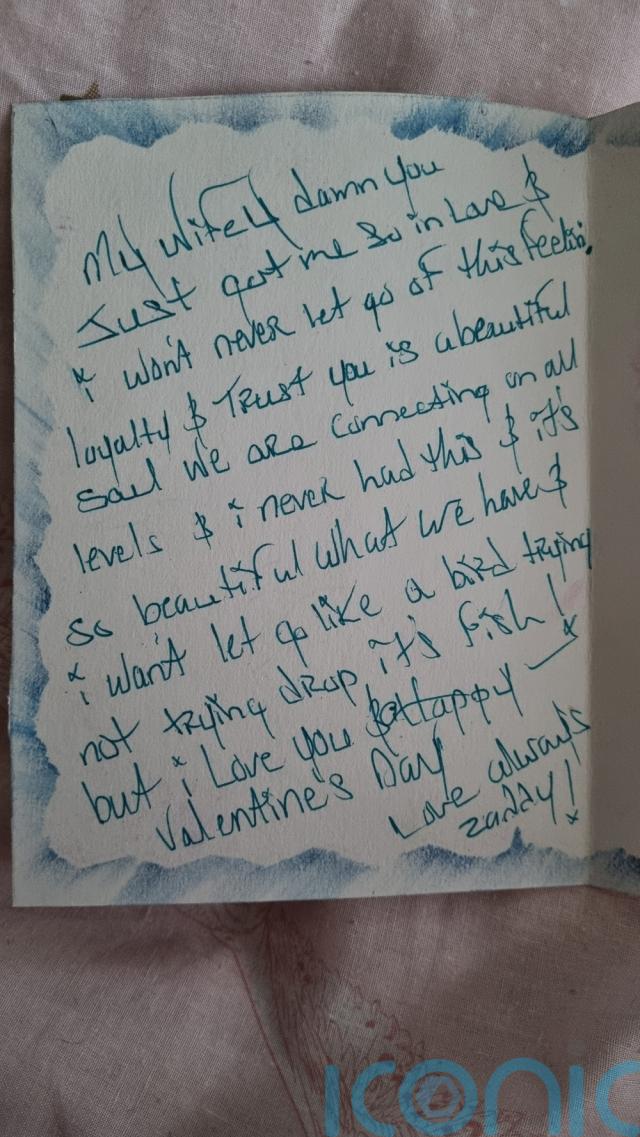 My wifey damn you
Just got me so in Love &
i won't never let go of this feelin.
loyalty & Trust you is a beautiful
soul we are connecting on all
levels & i never had this & it's
so beautiful what we have &
i wan't let go like a bird trying
not trying drop it's fish!
but i Love you & Happy
Valentine's Day
Love always
zaddy!
ICONIC